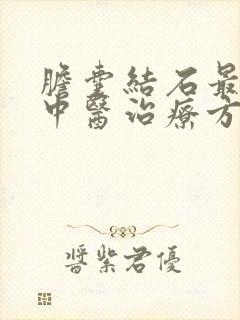 膽囊結石最
中醫治療方
醬紫君優